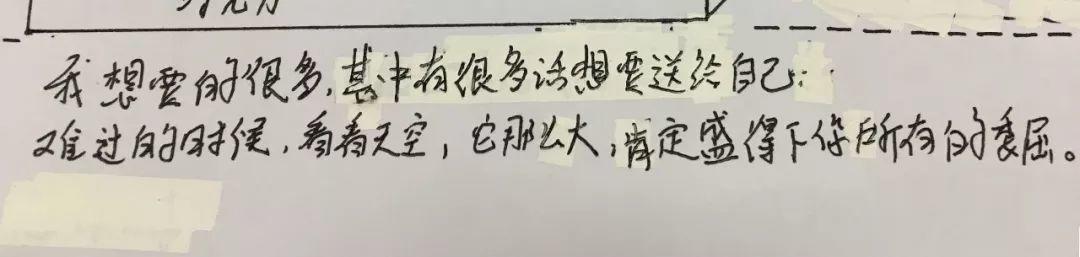 我想要的很多,其中有很多话想要送给自己:
难过的时候,看看天空,它那么大,肯定盛得下你所有的委屈。